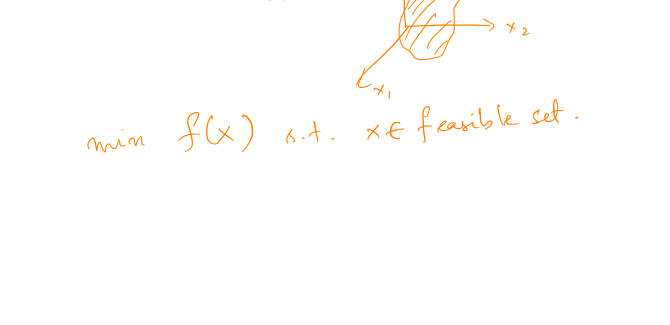 x₂
x₁
min f(x) s.t. x ∈ feasible set.